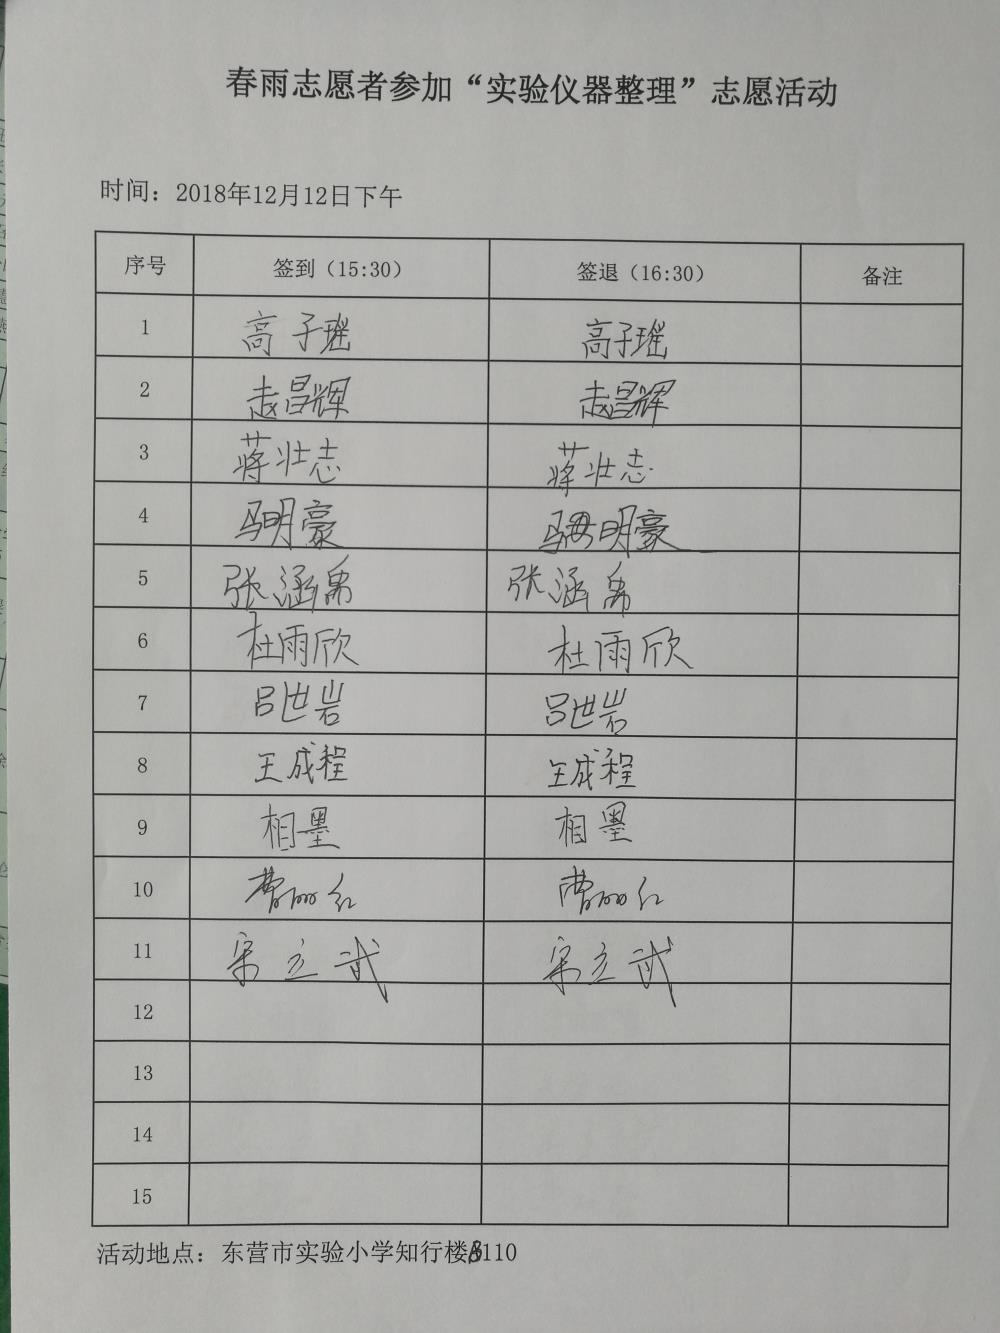 春雨志愿者参加“实验仪器整理”志愿活动
时间：2018年12月12日下午
序号 签到（15:30） 签退（16:30） 备注
1 高子瑶 高子瑶
2 赵昌辉 赵昌辉
3 蒋壮志 蒋壮志
4 马明豪 马明豪
5 张涵禹 张涵禹
6 杜雨欣 杜雨欣
7 吕世岩 吕世岩
8 王成程 王成程
9 相墨 相墨
10 曹丽红 曹丽红
11 宋立武 宋立武
12
13
14
15
活动地点：东营市实验小学知行楼B110